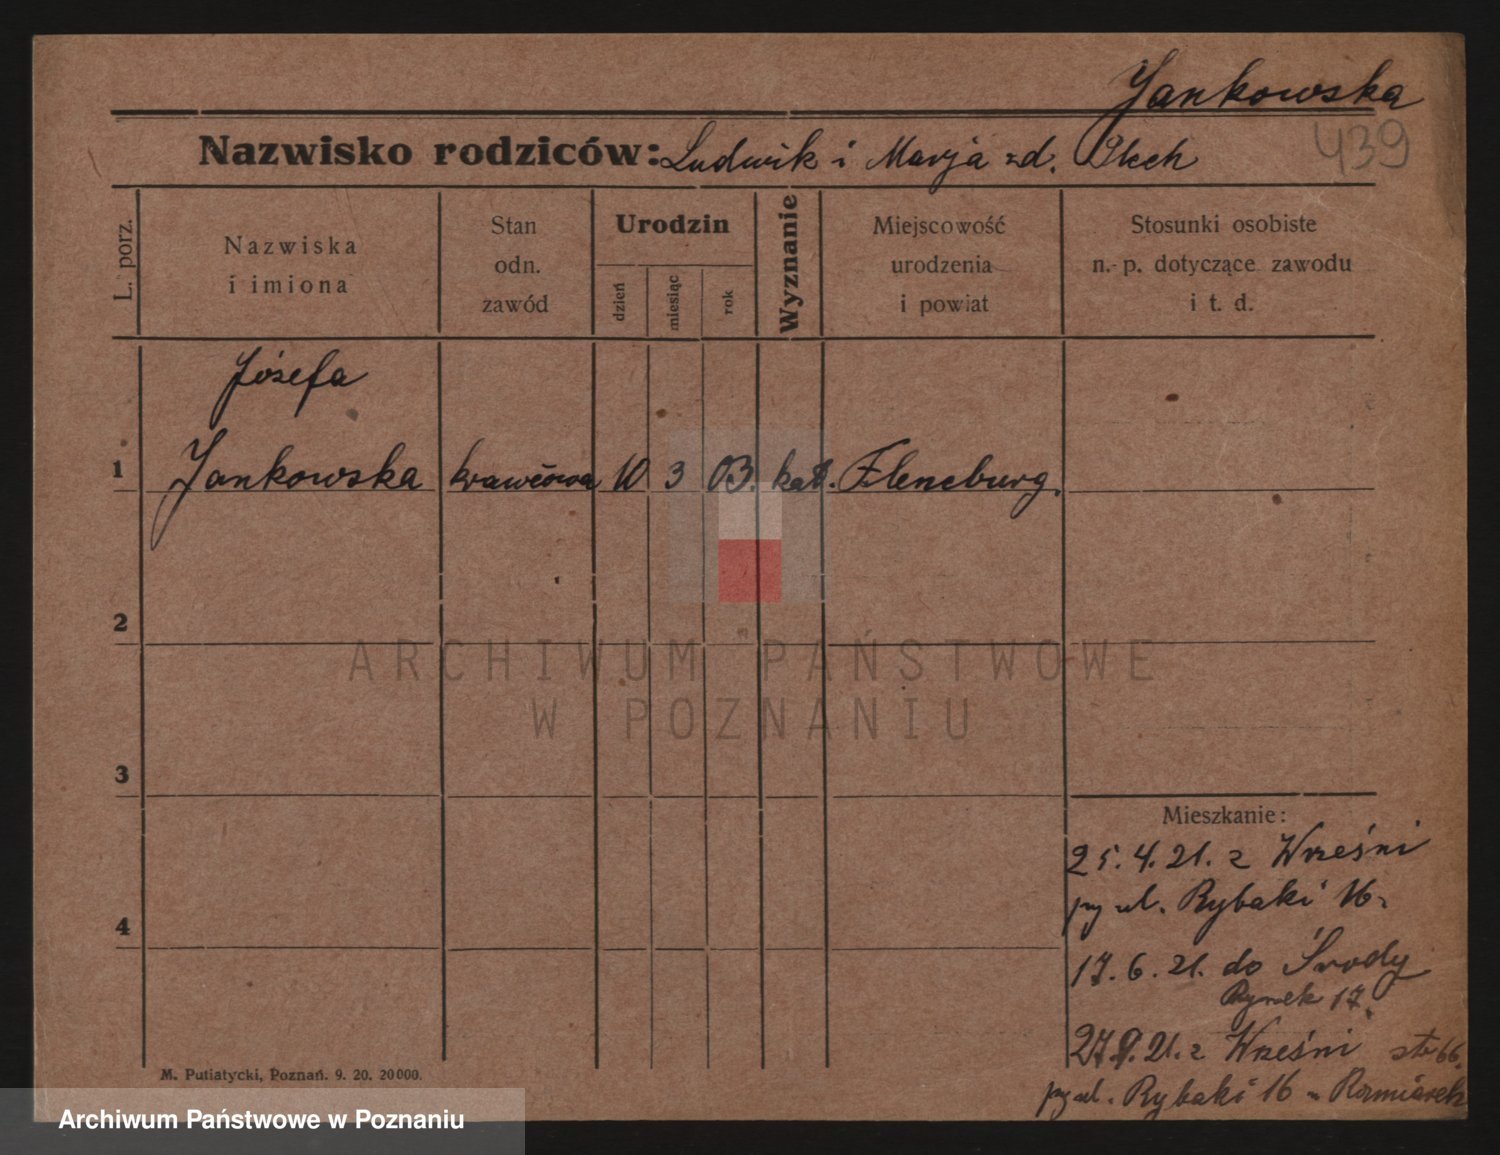 Jankowska
439
Nazwisko rodziców: Ludwik i Marja zd. Blech
L. porz.
Nazwiska
i imiona
Stan
odn.
zawód
Urodzin
dzień
miesiąc
rok
Wyznanie
Miejscowość
urodzenia
i powiat
Stosunki osobiste
n.-p. dotyczące zawodu
i t. d.
Józefa
1 Jankowska krawcowa 10 3 03. kat. Flensburg.
2
ARCHIWUM PAŃSTWOWE
W POZNANIU
3
Mieszkanie:
25.4.21. z Wrześni
py ul. Rybaki 16.
4
17.6.21. do Środy
Rynek 17.
27.9.21. z Wrześni str 66.
py ul. Rybaki 16
M. Putiatycki, Poznań. 9. 20. 20000.
Archiwum Państwowe w Poznaniu